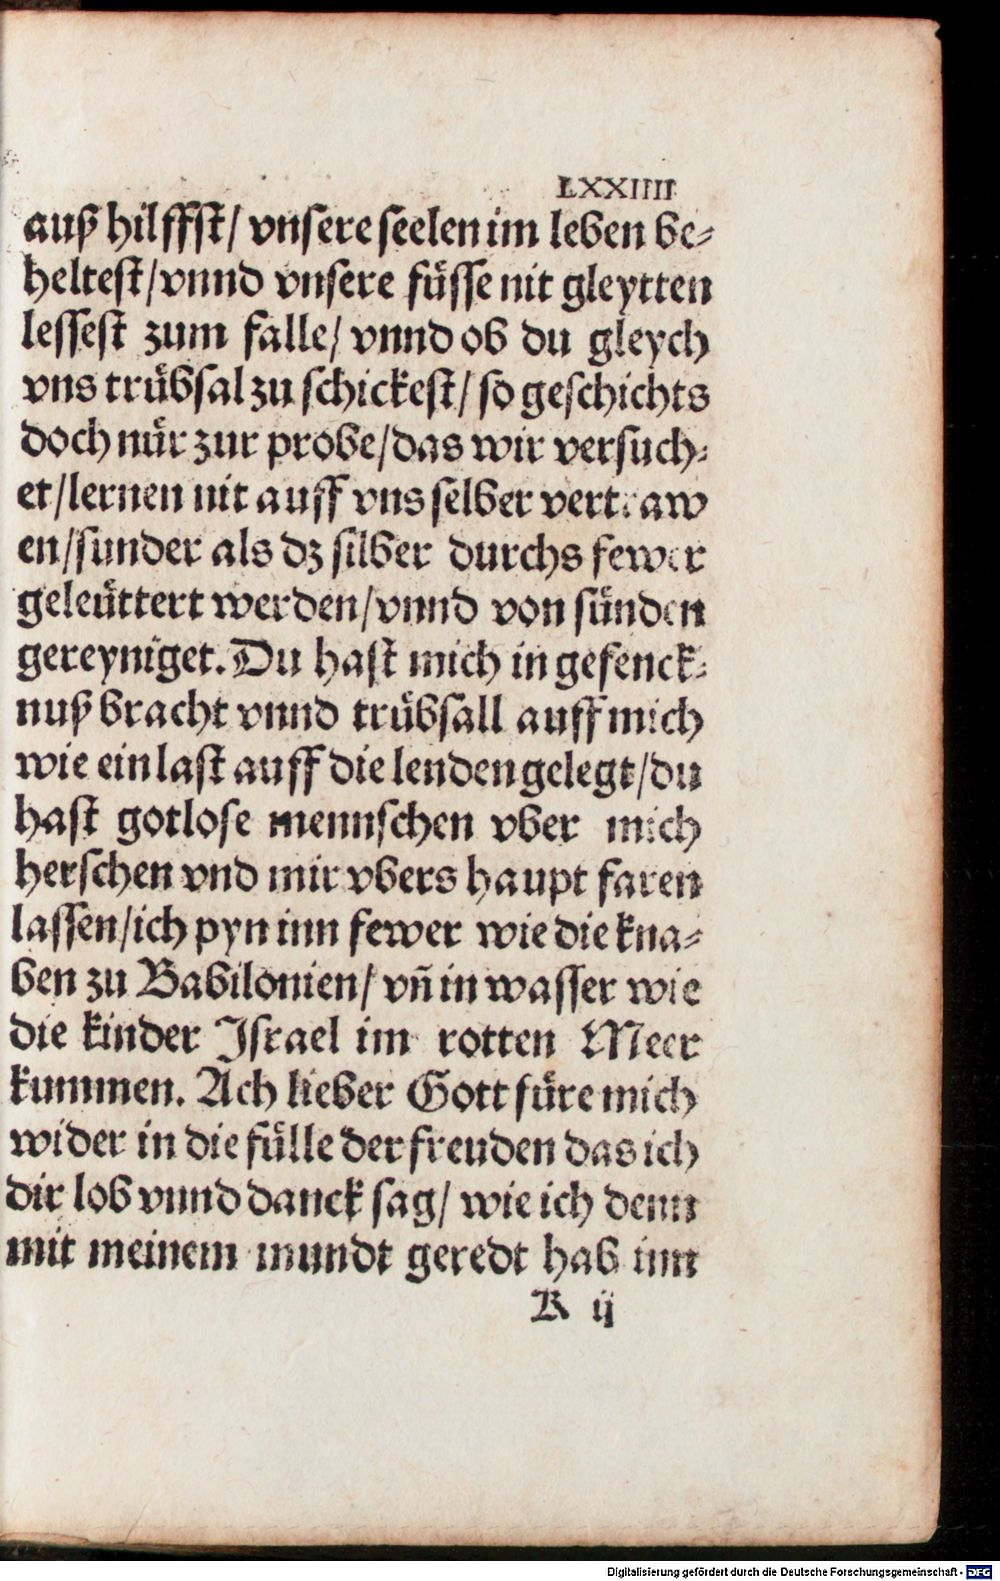 LXXIIII
auß hilffst/ vnsere seelen im leben be⸗
heltest/vnnd vnsere füsse nit gleytten
lessest zum falle/ vnnd ob du gleych
vns trübsal zu schickest/ so geschichts
doch nür zur probe/das wir versuch⸗
et/lernen nit auff vns selber vertraw
en/sunder als dz silber durchs fewer
geleüttert werden/vnnd von sünden
gereyniget. Du hast mich in gefenck⸗
nuß bracht vnnd trübsall auff mich
wie ein last auff die lenden gelegt/du
hast gotlose mennschen vber mich
herschen vnd mir vbers haupt faren
lassen/ich pyn inn fewer wie die kna⸗
ben zu Babilonien/ vñ in wasser wie
die kinder Israel im rotten Meer
kummen. Ach lieber Gott füre mich
wider in die fülle der freuden das ich
dir lob vnnd danck sag/ wie ich denn
mit meinem mundt geredt hab inn
K ij
Digitalisierung gefördert durch die Deutsche Forschungsgemeinschaft - DFG